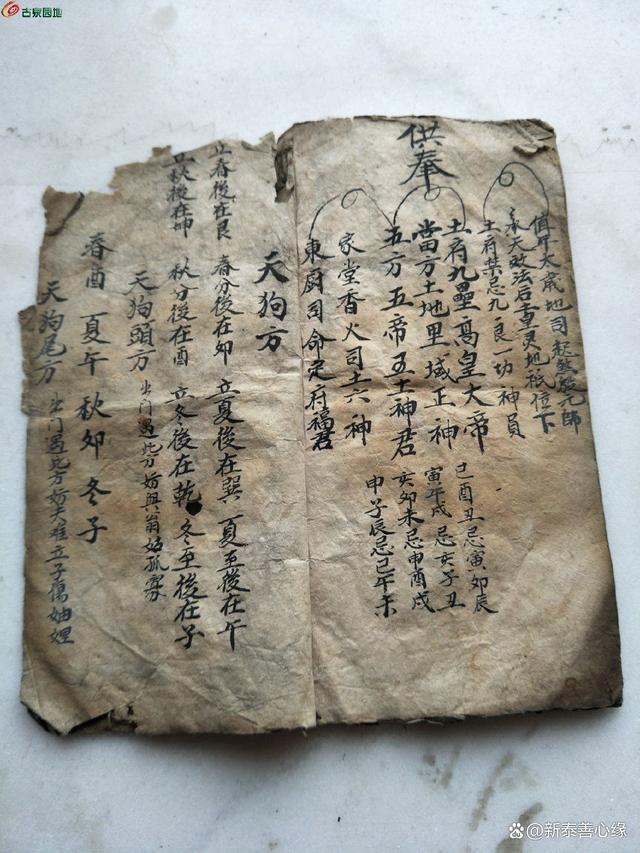 古泉园地
供奉
值年太歲地司
土府禁忌九良一切神員
土府九壘高皇大帝
當方土地里域正神
五方五帝五土神君
家堂香火司土六神
東厨司命定府福君
巳酉丑忌寅卯辰
寅午戌忌亥子丑
亥卯未忌申酉戌
申子辰忌巳午未
天狗方
立春後在艮 春分後在卯 立夏後在巽 夏至後在午
立秋後在坤 秋分後在酉 立冬後在乾 冬至後在子
天狗頭方 出门遇此方妨與翁姑孤寡
春酉 夏午 秋卯 冬子
天狗尾方 出门遇此方妨夫难立子
@新泰善心缘